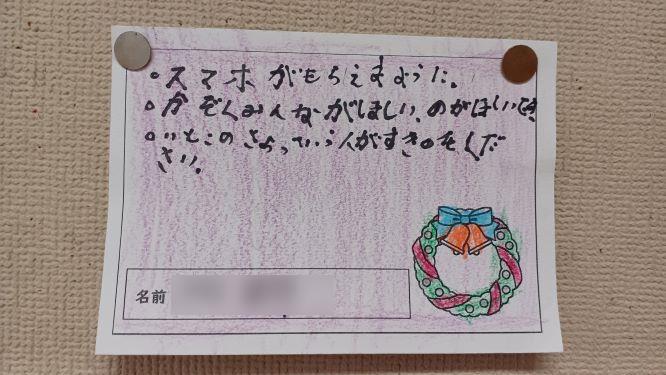 ・スマホがもらえますように。
・かぞくみんながほしい、のがほしいです
・いとこのきょうっていう人がすきのをくだ
さい。
名前